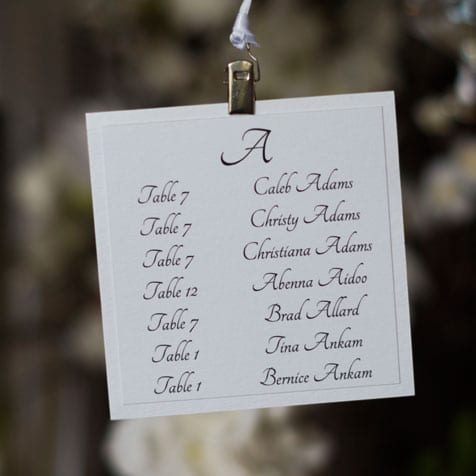 A
Table 7 Caleb Adams
Table 7 Christy Adams
Table 7 Christiana Adams
Table 12 Abenna Aidoo
Table 7 Brad Allard
Table 1 Tina Ankam
Table 1 Bernice Ankam